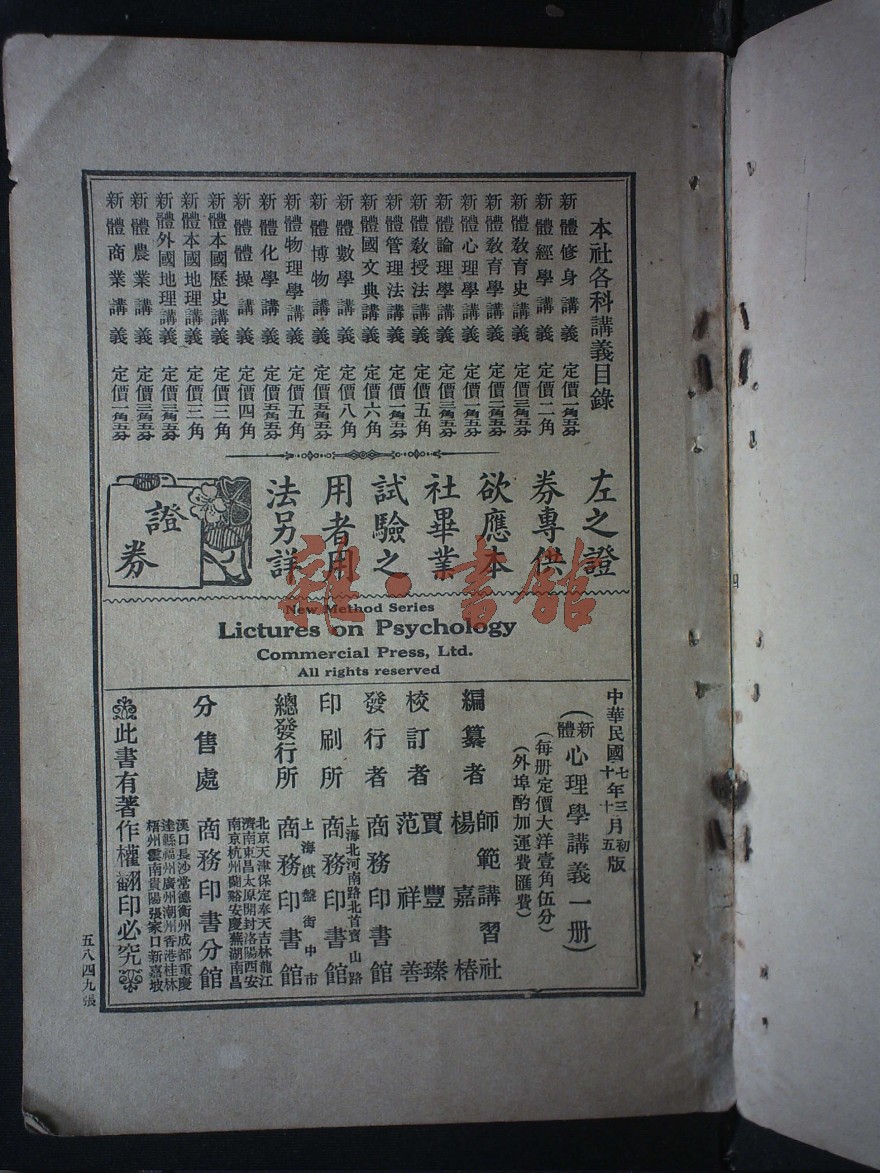 本社各科講義目錄
新體修身講義 定價一角五分
新體經學講義 定價二角
新體教育史講義 定價三角五分
新體教育學講義 定價二角五分
新體心理學講義 定價一角五分
新體論理學講義 定價三角五分
新體教授法講義 定價五角
新體管理法講義 定價一角五分
新體國文典講義 定價六角
新體數學講義 定價八角
新體博物講義 定價五角五分
新體物理學講義 定價五角
新體化學講義 定價五角五分
新體體操講義 定價四角
新體本國歷史講義 定價三角
新體本國地理講義 定價三角
新體外國地理講義 定價三角五分
新體農業講義 定價三角五分
新體商業講義 定價一角五分
左之證
券專供
欲應本
社畢業
試驗之
用者用
法另詳
證券
New Method Series
Lictures on Psychology
Commercial Press, Ltd.
All rights reserved
中華民國七年三月初版
十年十月五版
(新體心理學講義一册)
(每册定價大洋壹角伍分)
(外埠酌加運費匯費)
編纂者 師範講習社 楊嘉椿
校訂者 賈豐臻 范祥善
發行者 商務印書館
印刷所 上海北河南路北首寶山路 商務印書館
總發行所 上海棋盤街中市 商務印書館
分售處 北京天津保定奉天吉林龍江
濟南東昌太原開封洛陽西安
南京杭州蘭谿安慶蕪湖南昌
商務印書分館
漢口長沙常德衡州成都重慶
達縣福州廣州潮州香港桂林
梧州雲南貴陽張家口新嘉坡
此書有著作權翻印必究
五八四九張
雜·書館
四